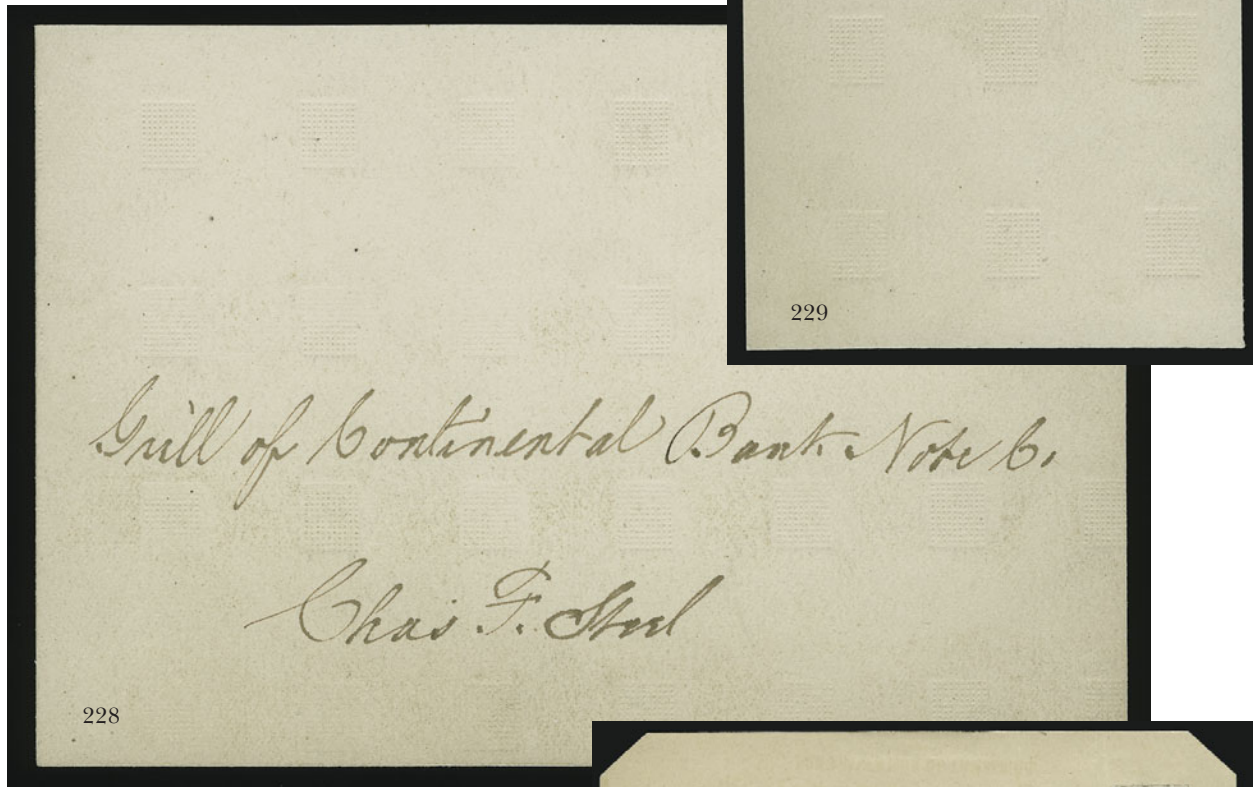 229
Grill of Continental Bank Note C.
Chas F. Steel
228